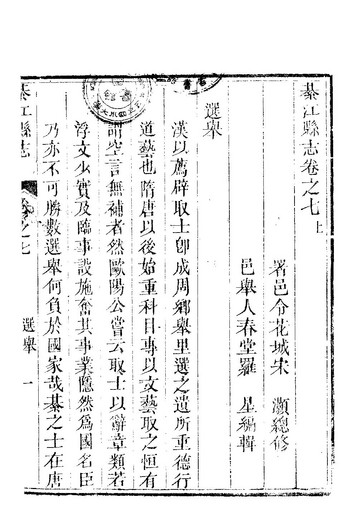 綦江縣志卷之七上
署邑令花城宋 灝總修
邑舉人春堂羅 星編輯
選舉
漢以薦辟取士卽成周鄉舉里選之遺所重德行
道藝也隋唐以後始重科目專以文藝取之恒有
謂空言無補者然歐陽公嘗云取士以辭章類若
浮文少實及臨事設施奮其事業隱然爲國名臣
乃亦不可勝數選舉何負於國家哉綦之士在唐
綦江縣志
卷之七
選舉
一